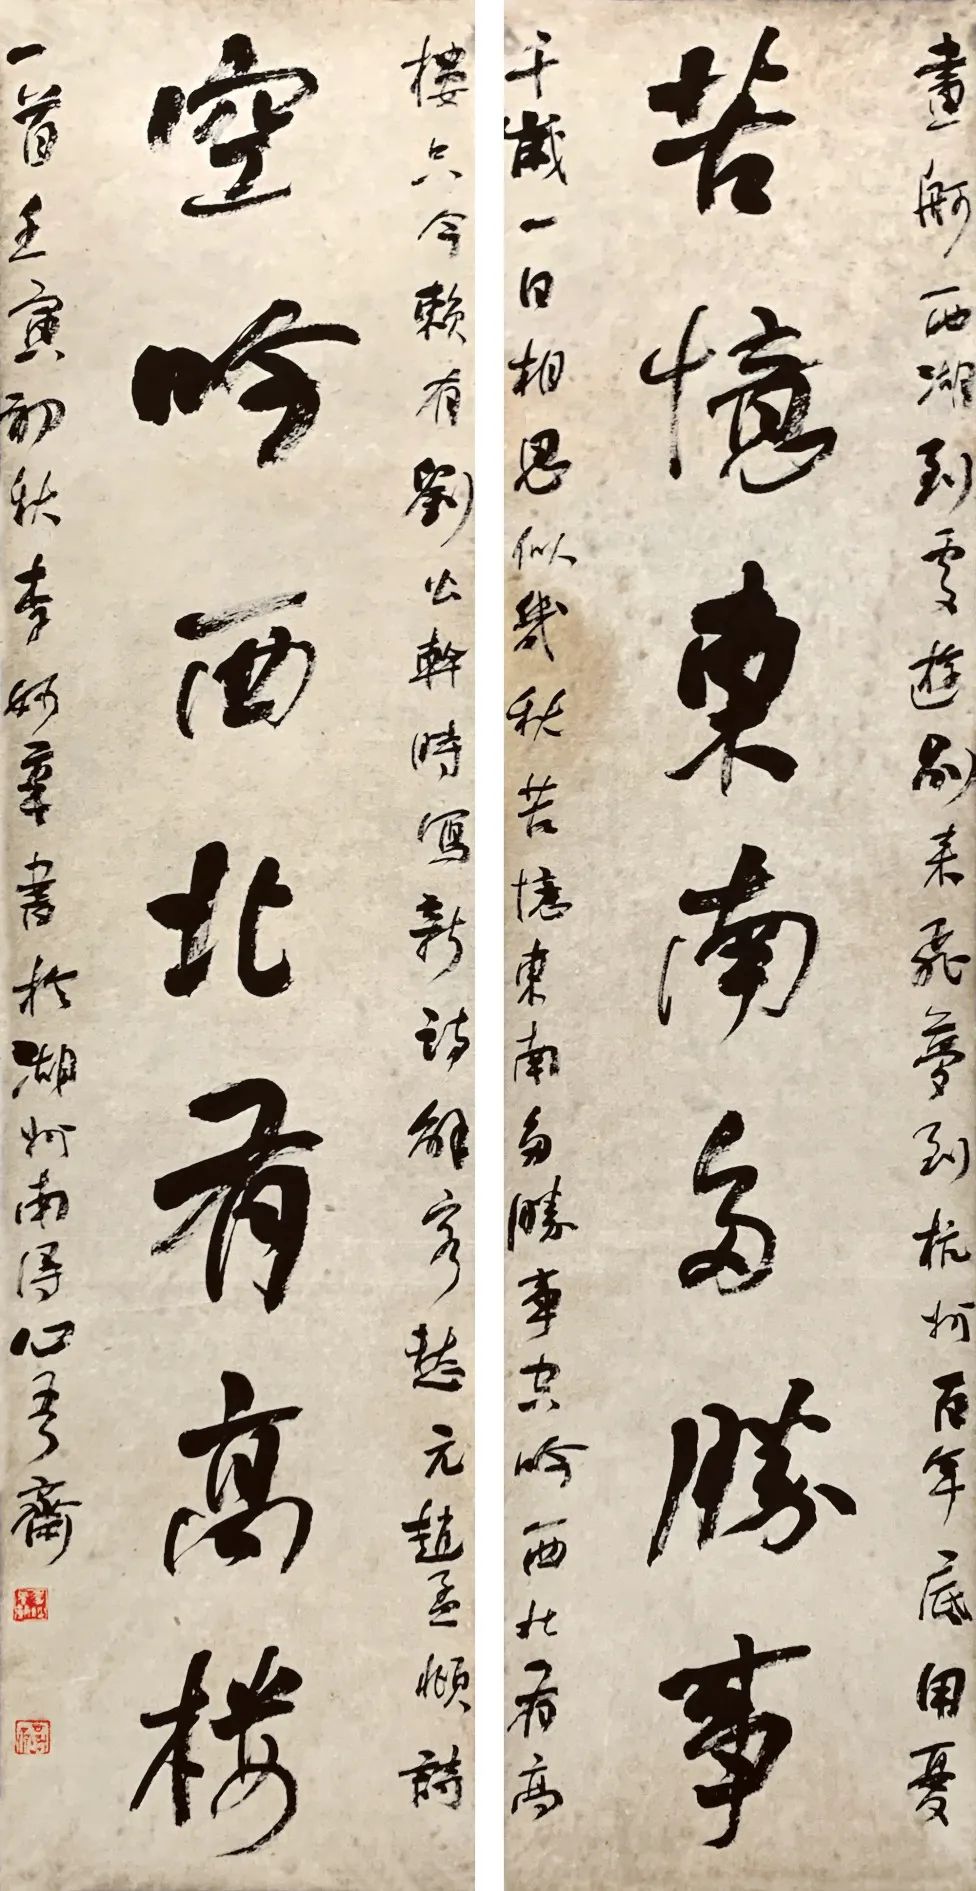 畫舸西湖到處遊別來飛夢到杭州百年底用憂
苦憶東南多勝事
千歲一日相思似幾秋苦憶東南多勝事空吟西北有高
樓只今賴有劉公幹時寫新詩解客愁元趙孟頫詩
空吟西北有高樓
一首壬寅初秋李書於湖州南得心齋